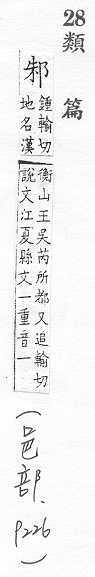 28
類篇
邾
鍾輸切
地名漢
衡山王吳芮所都又追輸切
說文江夏縣文一重音一
(邑部、P226)